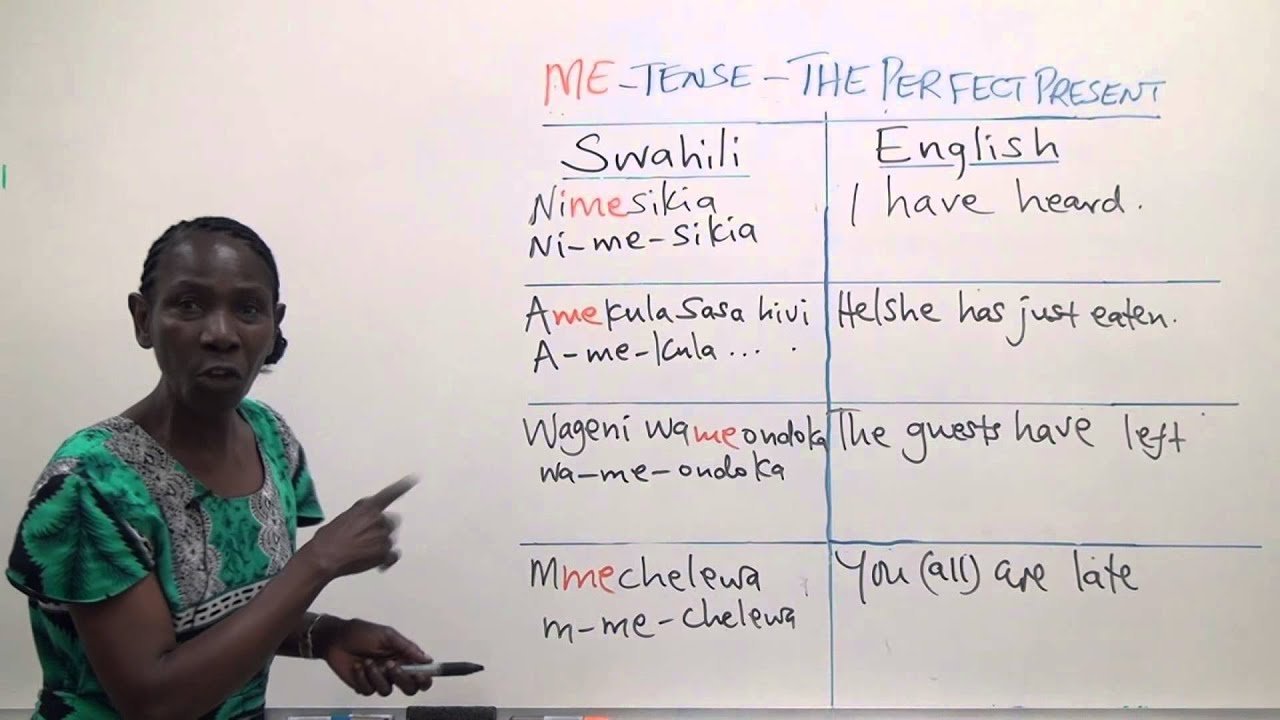 ME-TENSE-THE PERFECT PRESENT
Swahili
English
Nimesikia
I have heard.
Ni-me-sikia
Amekula sasa hivi
He/she has just eaten.
A-me-kula... .
Wageni wameondoka
The guests have left
wa-me-ondoka
Mmechelewa
You (all) are late
m-me-chelewa